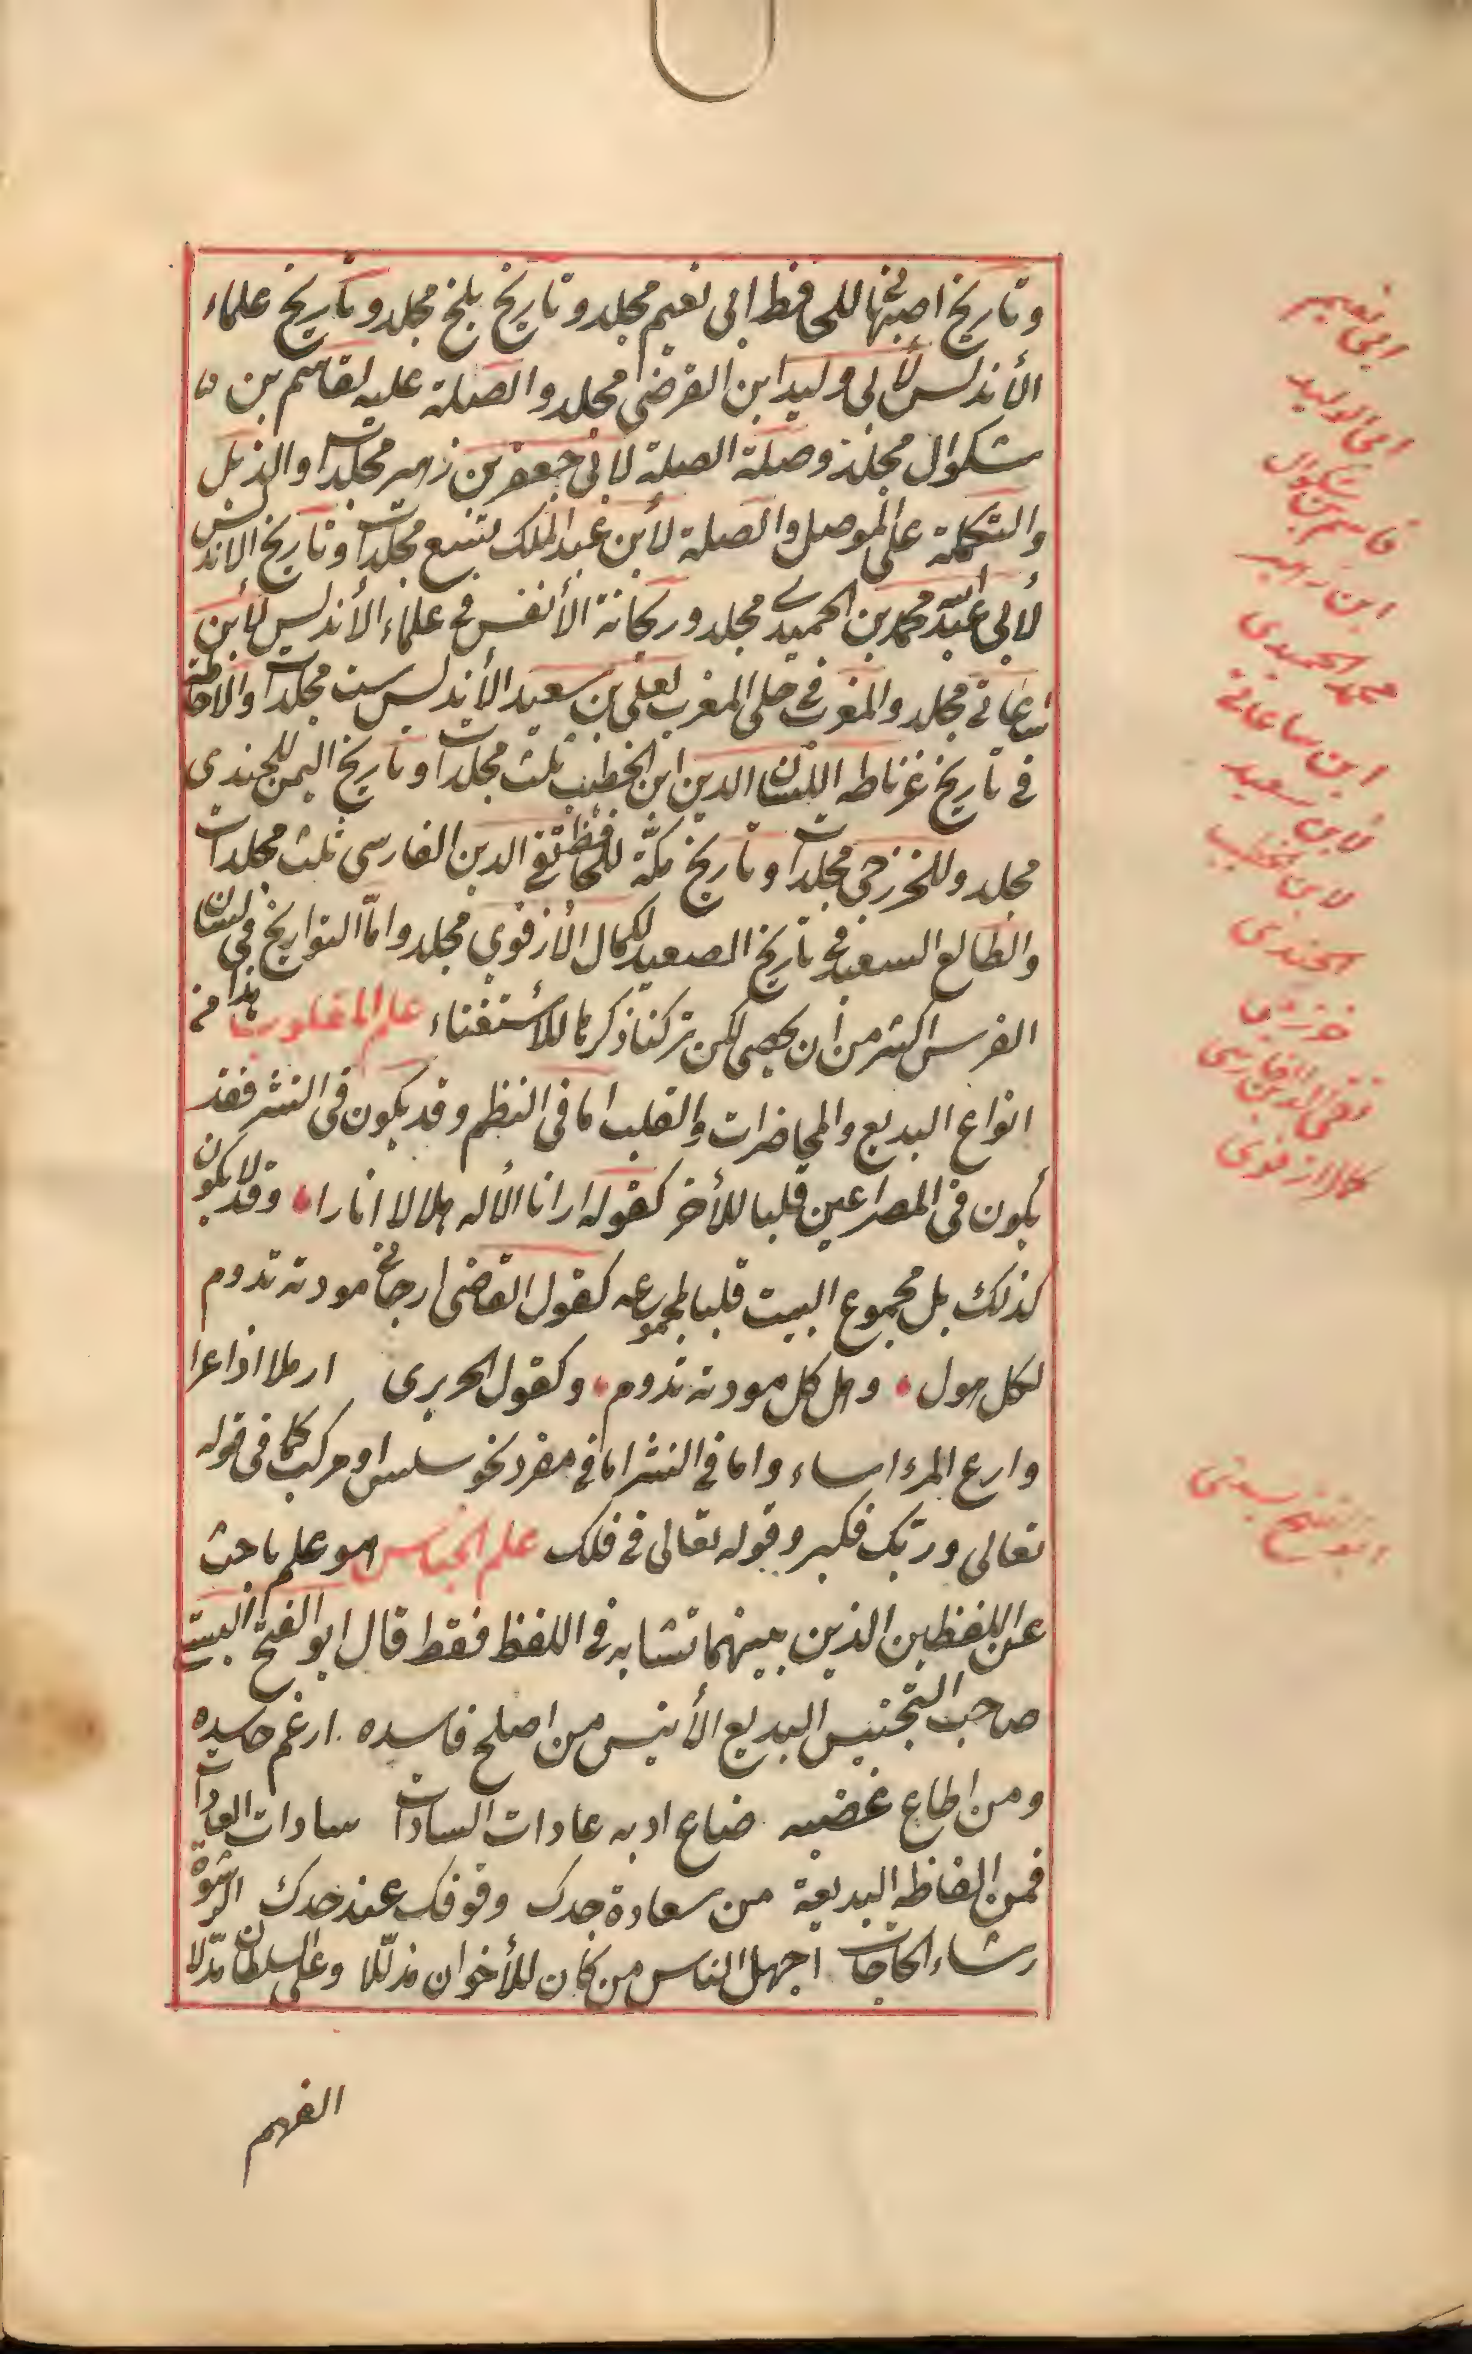 وتاريخ اصبهان للحافظ ابى نعيم مجلد وتاريخ بلخ مجلد وتاريخ علماء
الأندلس لأبى وليد ابن الفرضى مجلد والصلة عليه لقاسم بن
شكوال مجلد وصلة الصلة لابى جعفر بن زهير مجلدات والذيل
والتكملة على الموصل والصلة لأبن عبد الملك تسع مجلدات وتاريخ الاندلس
لأبى عبد الله محمد بن الحميدى مجلد وريحانة الأنفس فى علماء الأندلس لأبن
ساعاتى مجلد والمغرب فى حلى المغرب لعلى بن سعيد الأندلس ست مجلدات والاحاطة
فى تاريخ غرناطه اللسان الدين ابن الخطيب ثلث مجلدات وتاريخ اليمن للجندى
مجلد وللخزرجى مجلدات وتاريخ مكّة للحافظ تقى الدين الفارسى ثلث مجلدات
والطالع السعيد فى تاريخ الصعيد لكمال الأزفوى مجلد وامّا التواريخ فى لسان
الفرس اكثر من أن يحصى لكن تركنا ذكرها للأستغناء علم المقلوب هذا من
انواع البديع والمحاضرات والقلب اما فى النظم وقد يكون فى النثر فقد
يكون فى المصراعين قلبا للأخر كقوله ارانا الأله هلالا انارا وقد لا يكون
كذلك بل مجموع البيت قلبا لمجموعه كقول القاضى ارجانى مودته تدوم
لكل هول وهل كل مودته تدوم وكقول الحريرى ارملا اذا عرا
وارع المرء اساء واما فى النثر اما فى مفرد نحو سلس او مركب كما فى قوله
تعالى وربك فكبر وقوله تعالى فى فلك علم الجناس هو علم باحث
عن اللفظين الذين بينهما تشابه فى اللفظ فقط قال ابو الفتح البستى
صاحب التجنيس البديع الأنيس من اصلح فاسده ارغم حاسده
ومن اطاع غضبه ضاع ادبه عادات السادات سادات العادات
فمن الفاظه البديعة من سعادة جدك وقوفك عند حدك الرشوة
رشاء الحاجات اجهل الناس من كان للأخوان مذلّلا وعلى السلطان مدّلا
الفهم
ابى نعيم
ابى الوليد
قاسم بن شكوال
ابن زهير
محمد الحميدى
ابن ساعاتى
لأبن سعيد
لابن الخطيب
الجندى
خزرجى
تقى الدين الفارسى
كمال ازفوى
ابو الفتح بستى